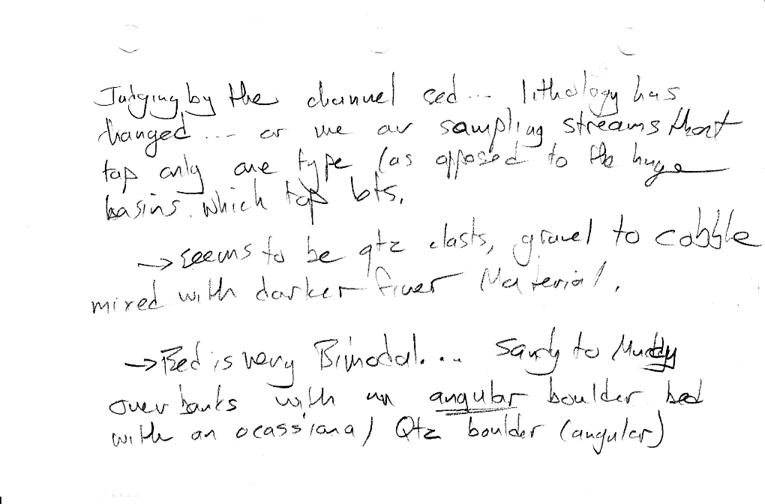 Judging by the channel sed... lithology has
changed... or we are sampling streams that
tap only one type (as opposed to the huge
basins which tap lots.
→ seems to be qtz clasts, gravel to cobble
mixed with darker finer Material.
→ Bed is very Bimodal.... Sandy to Muddy
over banks with an angular boulder bed
with an ocassional Qtz boulder (angular)